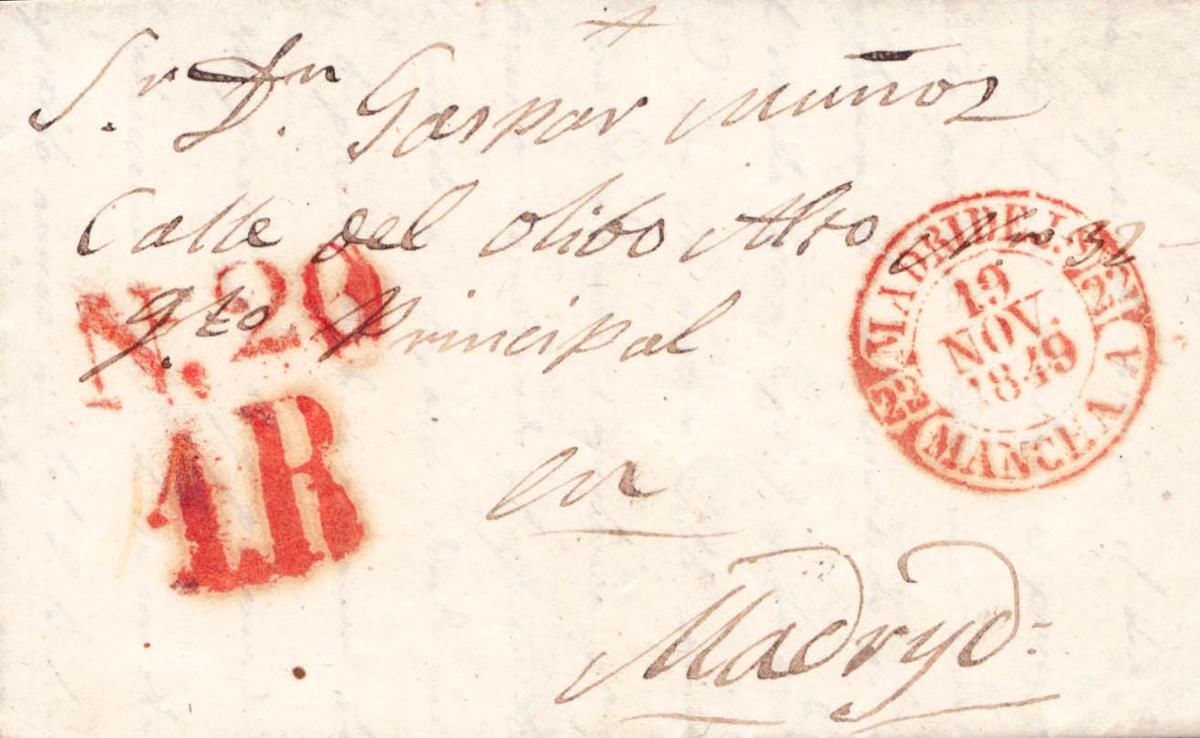 Sr. Dn. Gaspar Muñoz
Calle del olibo Alto No 32
qto Principal
en
Madryd.
N. 20
1R
MADRIDEJ.
22
19
NOV.
1849
22
MANCHA